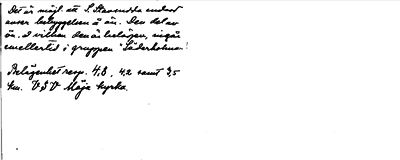 Det är möjl. att S. Stavsudda endast
avser bebyggelsen å ön. Den del av
ön, i vilken den är belägen, ingår
emellertid i gruppen "Söderholmen".
Belägenhet resp. 4,8, 4,2 samt 3,5
km. VSV Möja kyrka.